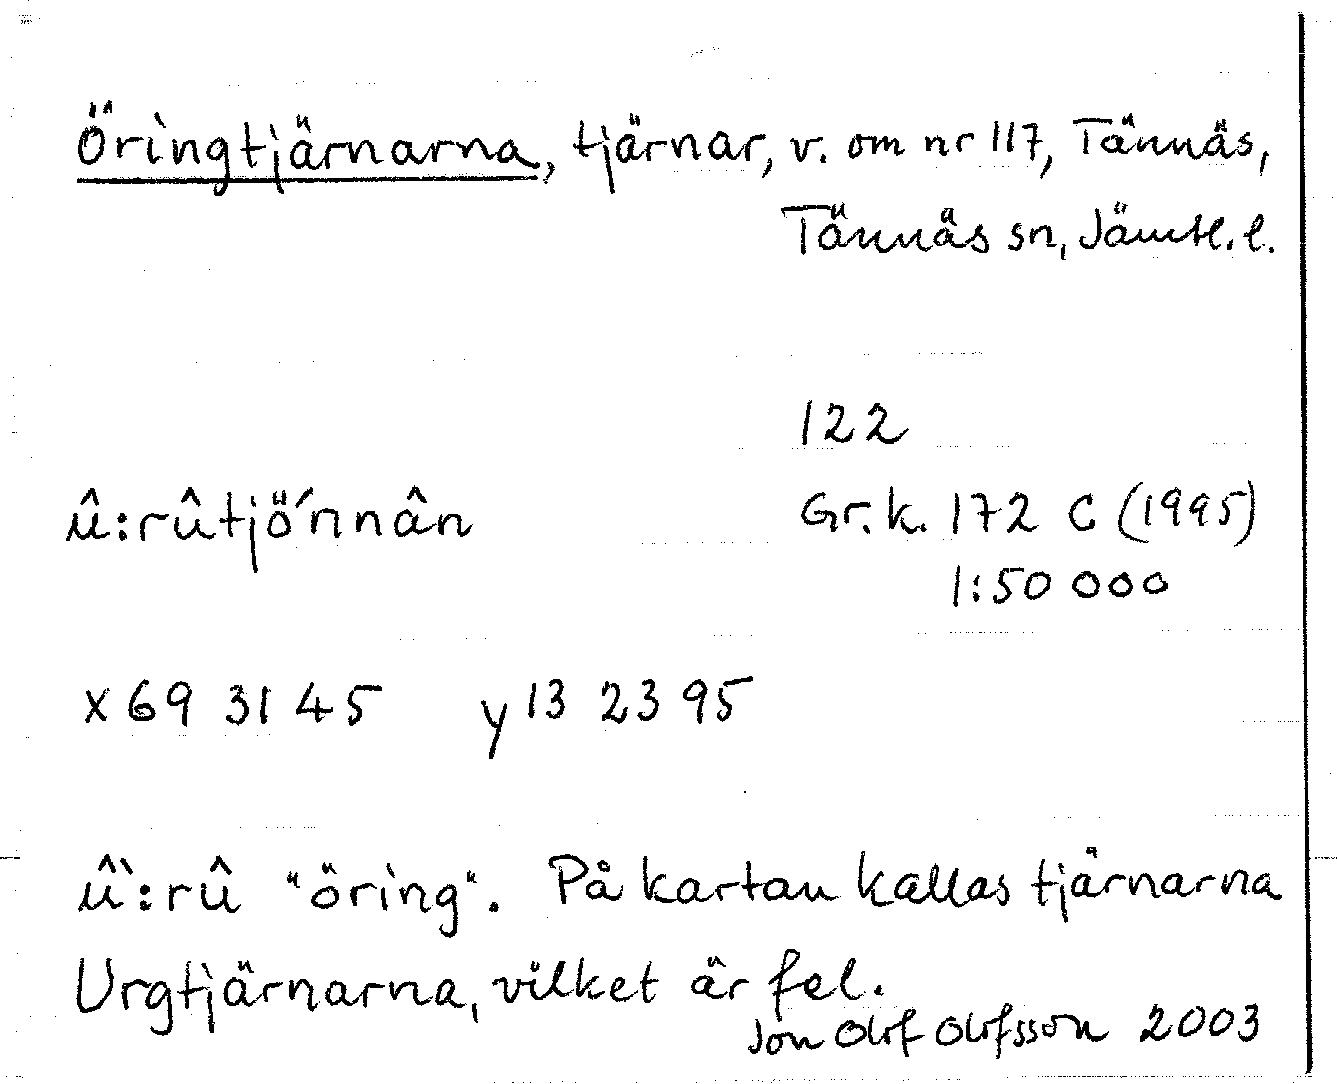 Öringtjärnarna, tjärnar, v. om nr 117, Tännäs,
Tännäs sn, Jämtl. l.
122
û:rûtjö́nnân
Gr.k. 172 C (1995)
1:50 000
x 69 31 45 y 13 23 95
û̀:rû "öring". På kartan kallas tjärnarna
Urgtjärnarna, vilket är fel.
Jon Olof Olofsson 2003